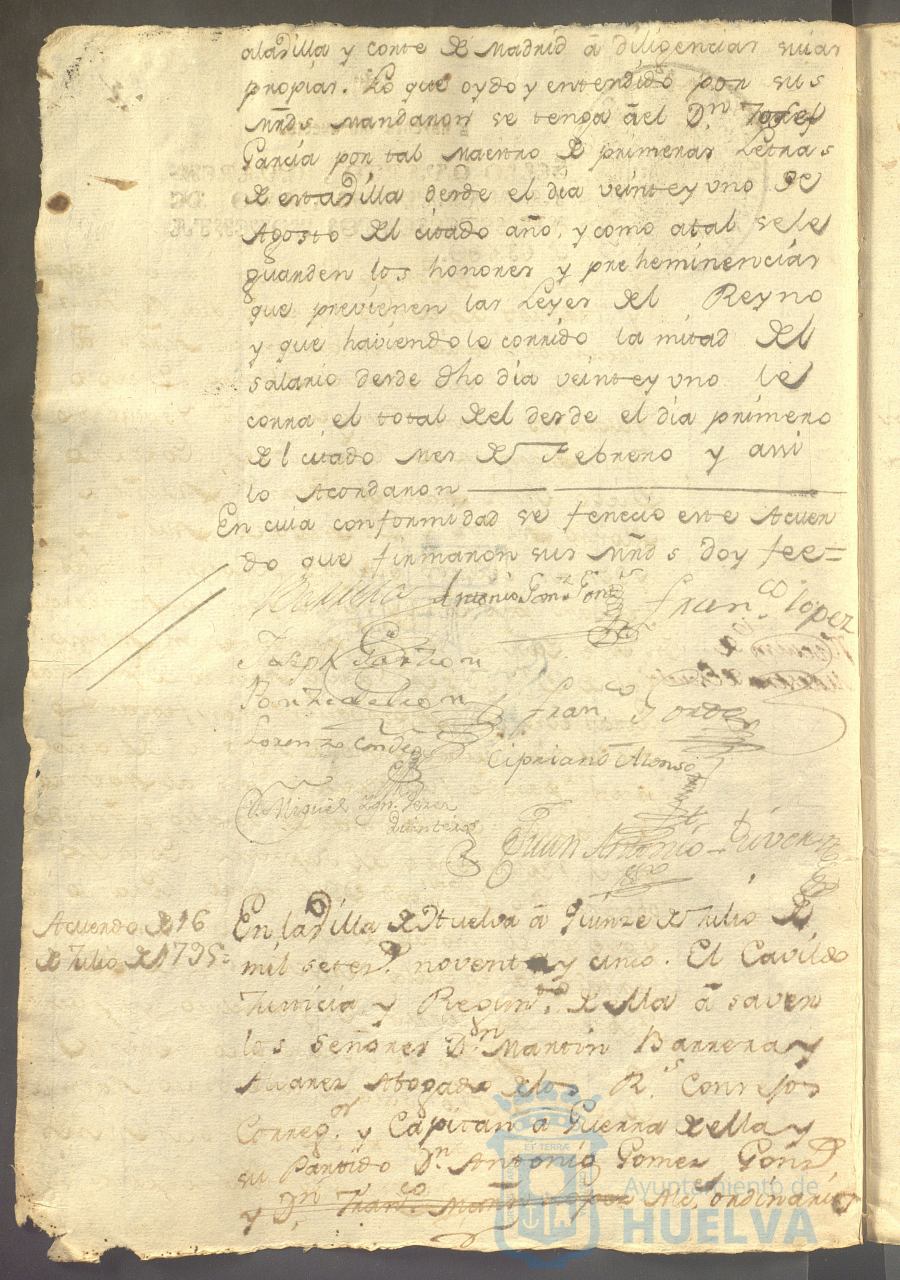 alavilla y corte de Madrid â diligencias suias
propias. Lo que oydo y entendido por sus
Mrds mandaron se tenga âel Dn Josef
Garcia por tal Maestro de primeras Letras
de esta villa desde el dia veinte y uno de
Agosto del citado año, y como atal sele
guarden los honores y preheminencias
que previenen las Leyes del Reyno
y que haviendole corrido la mitad del
salario desde dho dia veinte y uno le
corra el total del desde el dia primero
del citado mes de Febrero y assi
lo Acordaron
En cuia conformidad se feneció este Acuer
do que firmaron sus Mrds doy fee=
Barrera Antonio Gomz Gonz Franco lopez
Josph Garzon
Ponze de leon Franco Jordan
Lorenzo Conde Cipriano Alonso
Dn Miguel Perez
Quintero
Juan Antonio Rivera
Acuerdo de 16
de Julio de 1795=
En la villa de Huelva â quinze de Julio de
mil seters noventa y cinco. El Cavildo
Justicia y Regimto de ella â saver
los señores Dn Martin Barrera y
Alvarez Abogado delos Rs Consejos
Corregor y Capitan â Guerra de ella y
su Partido Dn Antonio Gomez Gonz
y Dn Franco Lopez Ale ordinarios
ET TERRÆ
Ayuntamiento de
HUELVA